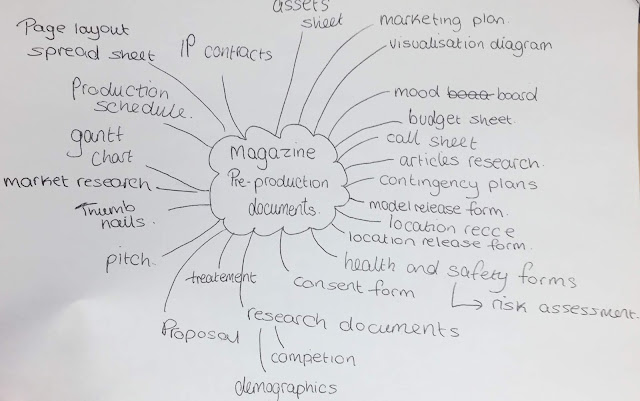 assets
sheet
marketing plan.
visualisation diagram
Page layout
spread sheet
IP contracts
Production
schedule.
mood board
budget sheet.
call sheet
articles research.
gantt
chart
contingency plans
market research
magazine
Pre-production
documents.
model release form.
Thumb
nails.
location recce
location release form.
pitch.
health and safety forms
risk assessment.
treatement
consent form
Proposal
research documents
completion
demographics